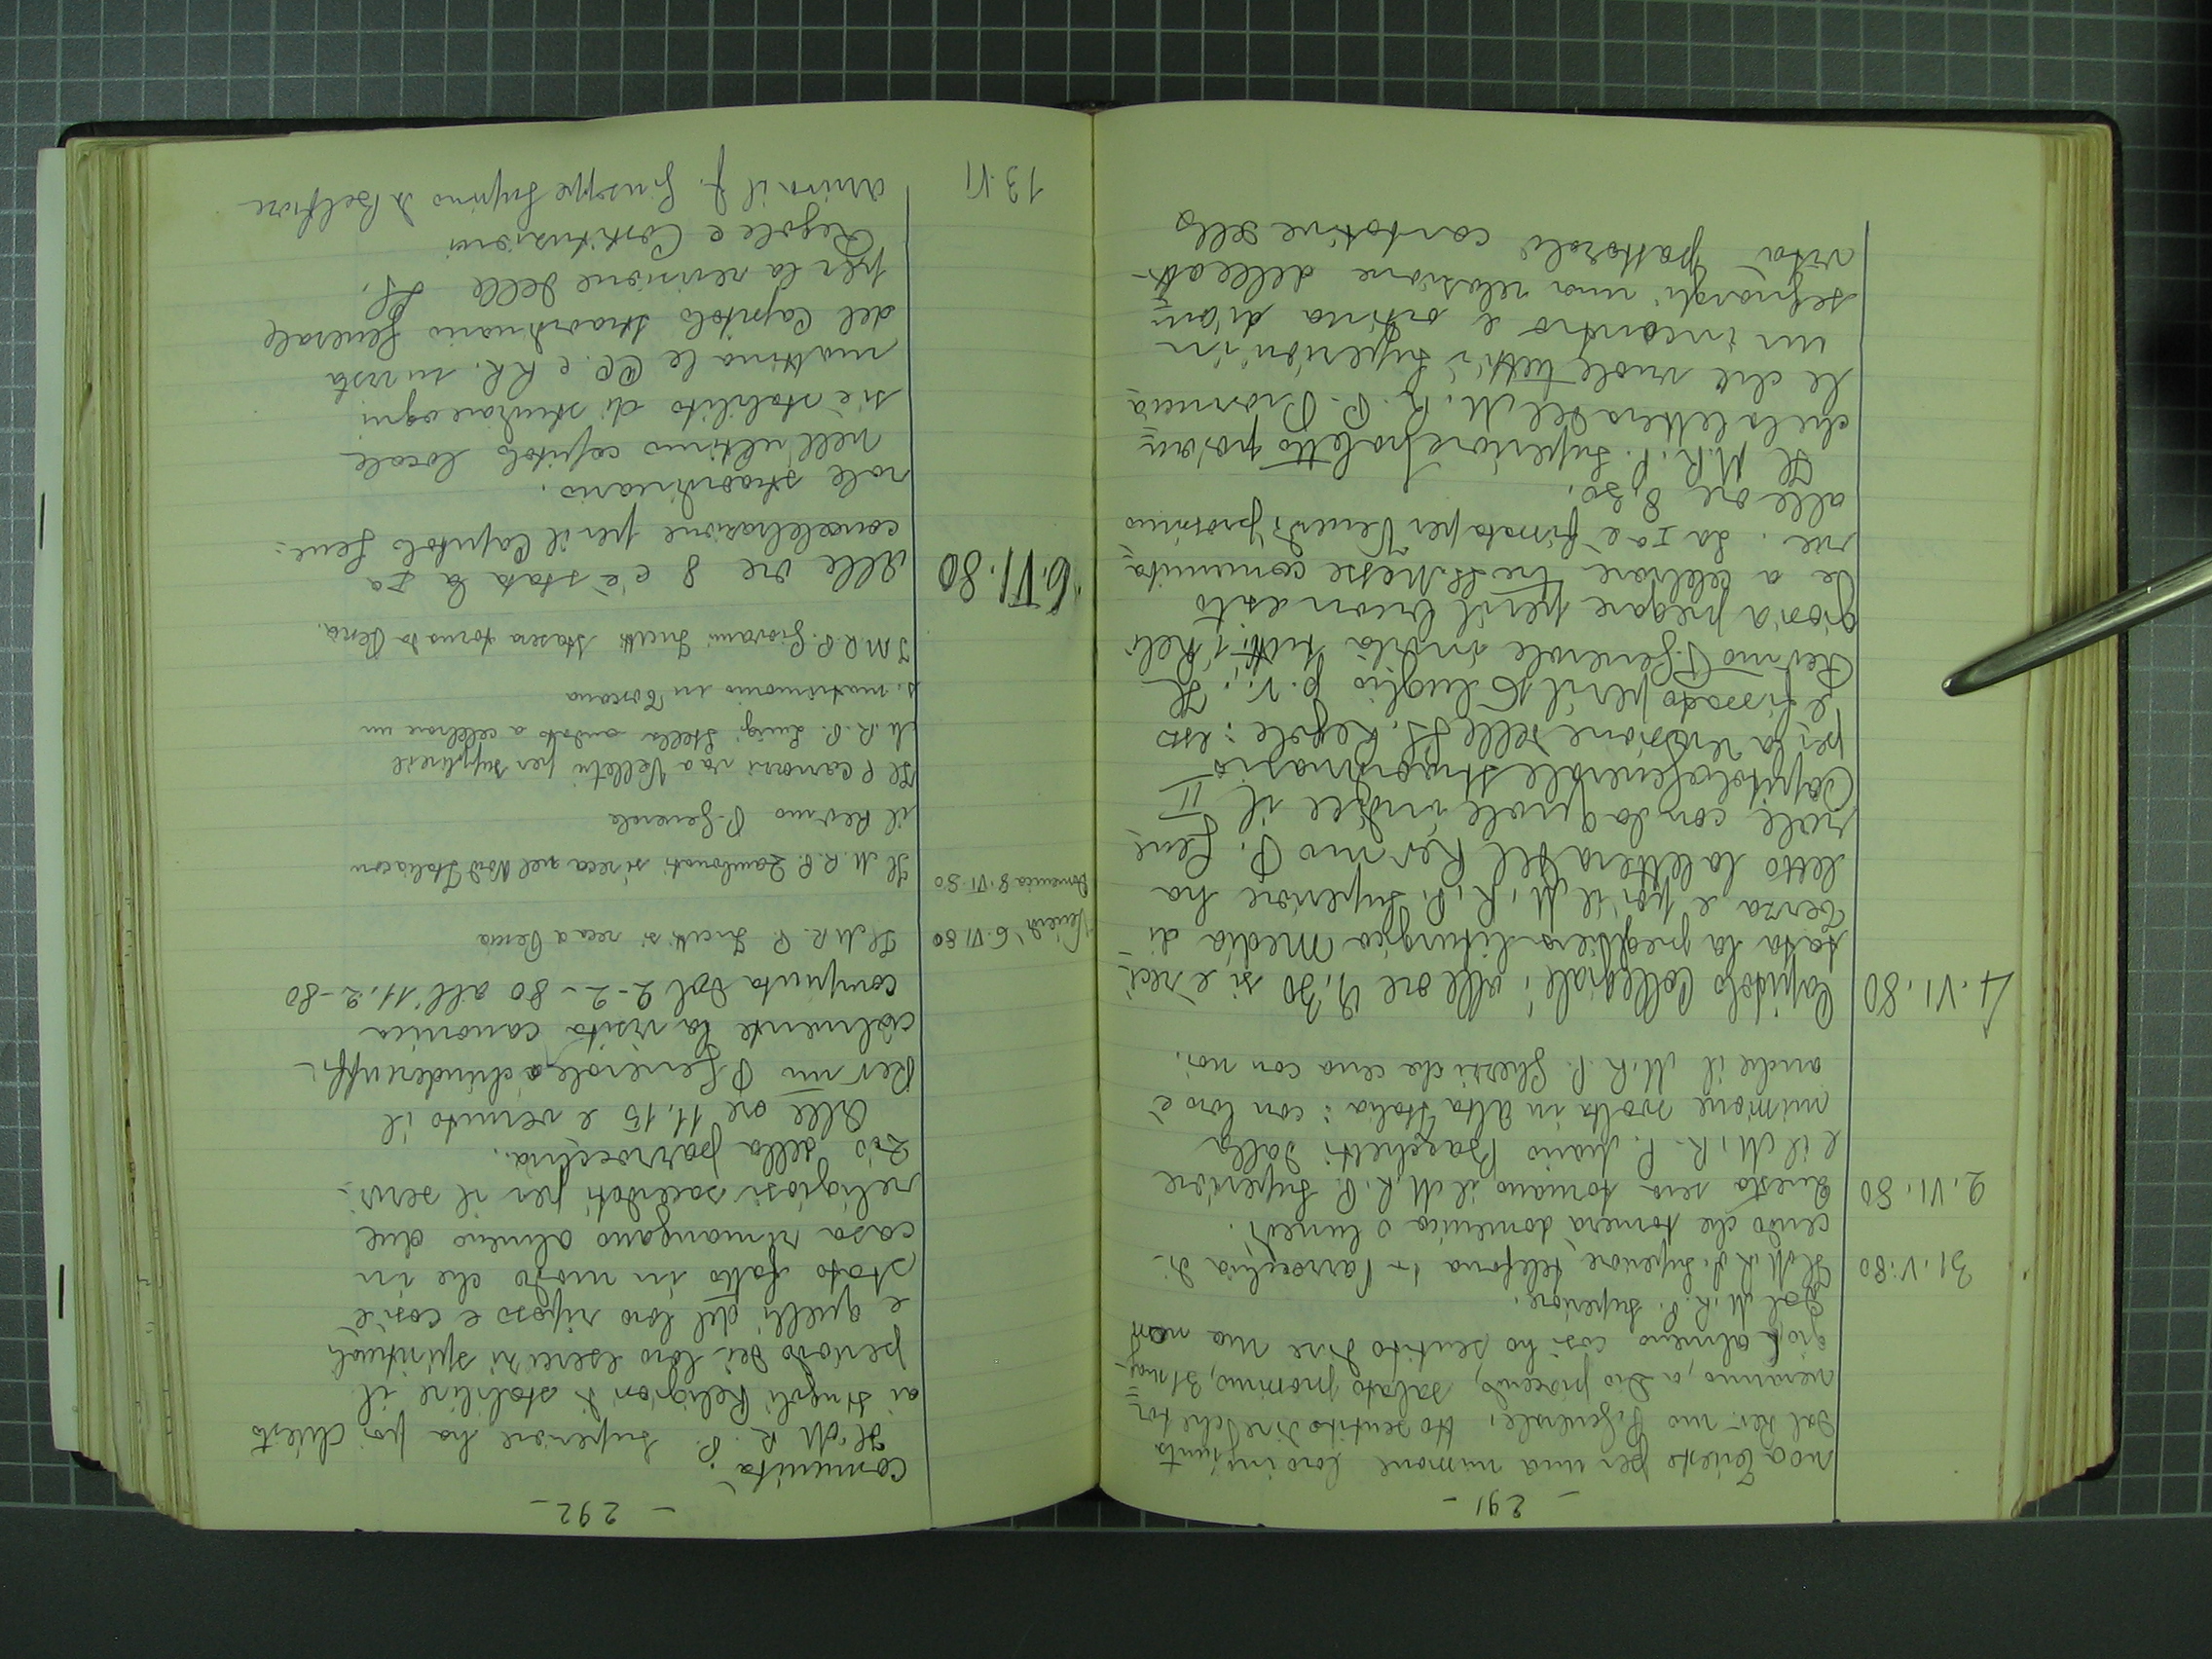 - 291 -
no a Trieste per una missione loro ingiunta
dal Rev.mo P. Generale. Ho sentito dire che tor=
neranno, a Dio piacendo, sabato prossimo, 31 mag-
gio, almeno così ho sentito dire ma non
dal M. R. P. Superiore.
31. V. 80 Il M. R. P. Superiore telefona in Parrocchia di-
cendo che tornerà domenica o lunedì.
2. VI. 80 Questa sera tornano il M. R. P. Superiore
e il M. R. P. Mario Bacchetti dalla
missione svolta in alta Italia: con loro è
anche il M. R. P. Ghezzi che cena con noi.
4. VI. 80 Capitolo Collegiale: alle ore 9,30 si è reci=
tata la preghiera liturgica Media di
Terza e poi il M. R. P. Superiore ha
letto la lettera del Rev.mo P. Gene=
rale con la quale indice il II
Capitolo Generale straordinario
per la revisione delle SS. Regole: esso
è fissato per il 16 luglio p. v.. Il
Rev.mo P. Generale invita tutti i Reli
giosi a pregare per il buon esito
e a celebrare tre SS. Messe comunita
rie. La Ia è fissata per Venerdì prossimo
alle ore 8,30.
Il M. R. P. Superiore ha letto poi an=
che la lettera del M. R. P. Provincia
le che vuole tutti i Superiori in
un incontro e ordina di con=
segnargli una relazione delle atti=
vità pastorali caritative dello
- 292 -
comunità.
Il M. R. P. Superiore ha poi chiesto
ai singoli Religiosi di stabilire il
periodo dei loro esercizi spirituali
e quelli del loro riposo e così è
stato fatto in modo che in
casa rimangano almeno due
religiosi sacerdoti per il servi-
zio della parrocchia.
Alle ore 11,15 è venuto il
Rev.mo P. Generale a chiudere uffi-
cialmente la visita canonica
compiuta dal 2-2-80 all'11-2-80
Venerdì 6. VI. 80 Il M. R. P. si reca a
Domenica 8. VI. 80 Il M. R. P. Zambonati si reca nel Nord Italia con
il Rev.mo P. Generale
Il P. va a Velletri per supplire il
M. R. P. Luigi Stella andato a celebrare un
s. matrimonio in Toscana
Il M. R. P. Giovanni stasera torna da
6. VI. 80 Alle ore 8 c'è stata la Ia
concelebrazione per il Capitolo Gene=
rale straordinario.
Nell'ultimo capitolo locale
si è stabilito di studiare ogni
mattina le CC. e RR. in vista
del Capitolo straordinario generale
per la revisione delle SS.
Regole e Costituzioni
13. VI arriva il f. Giuseppe Supino da Belfiore